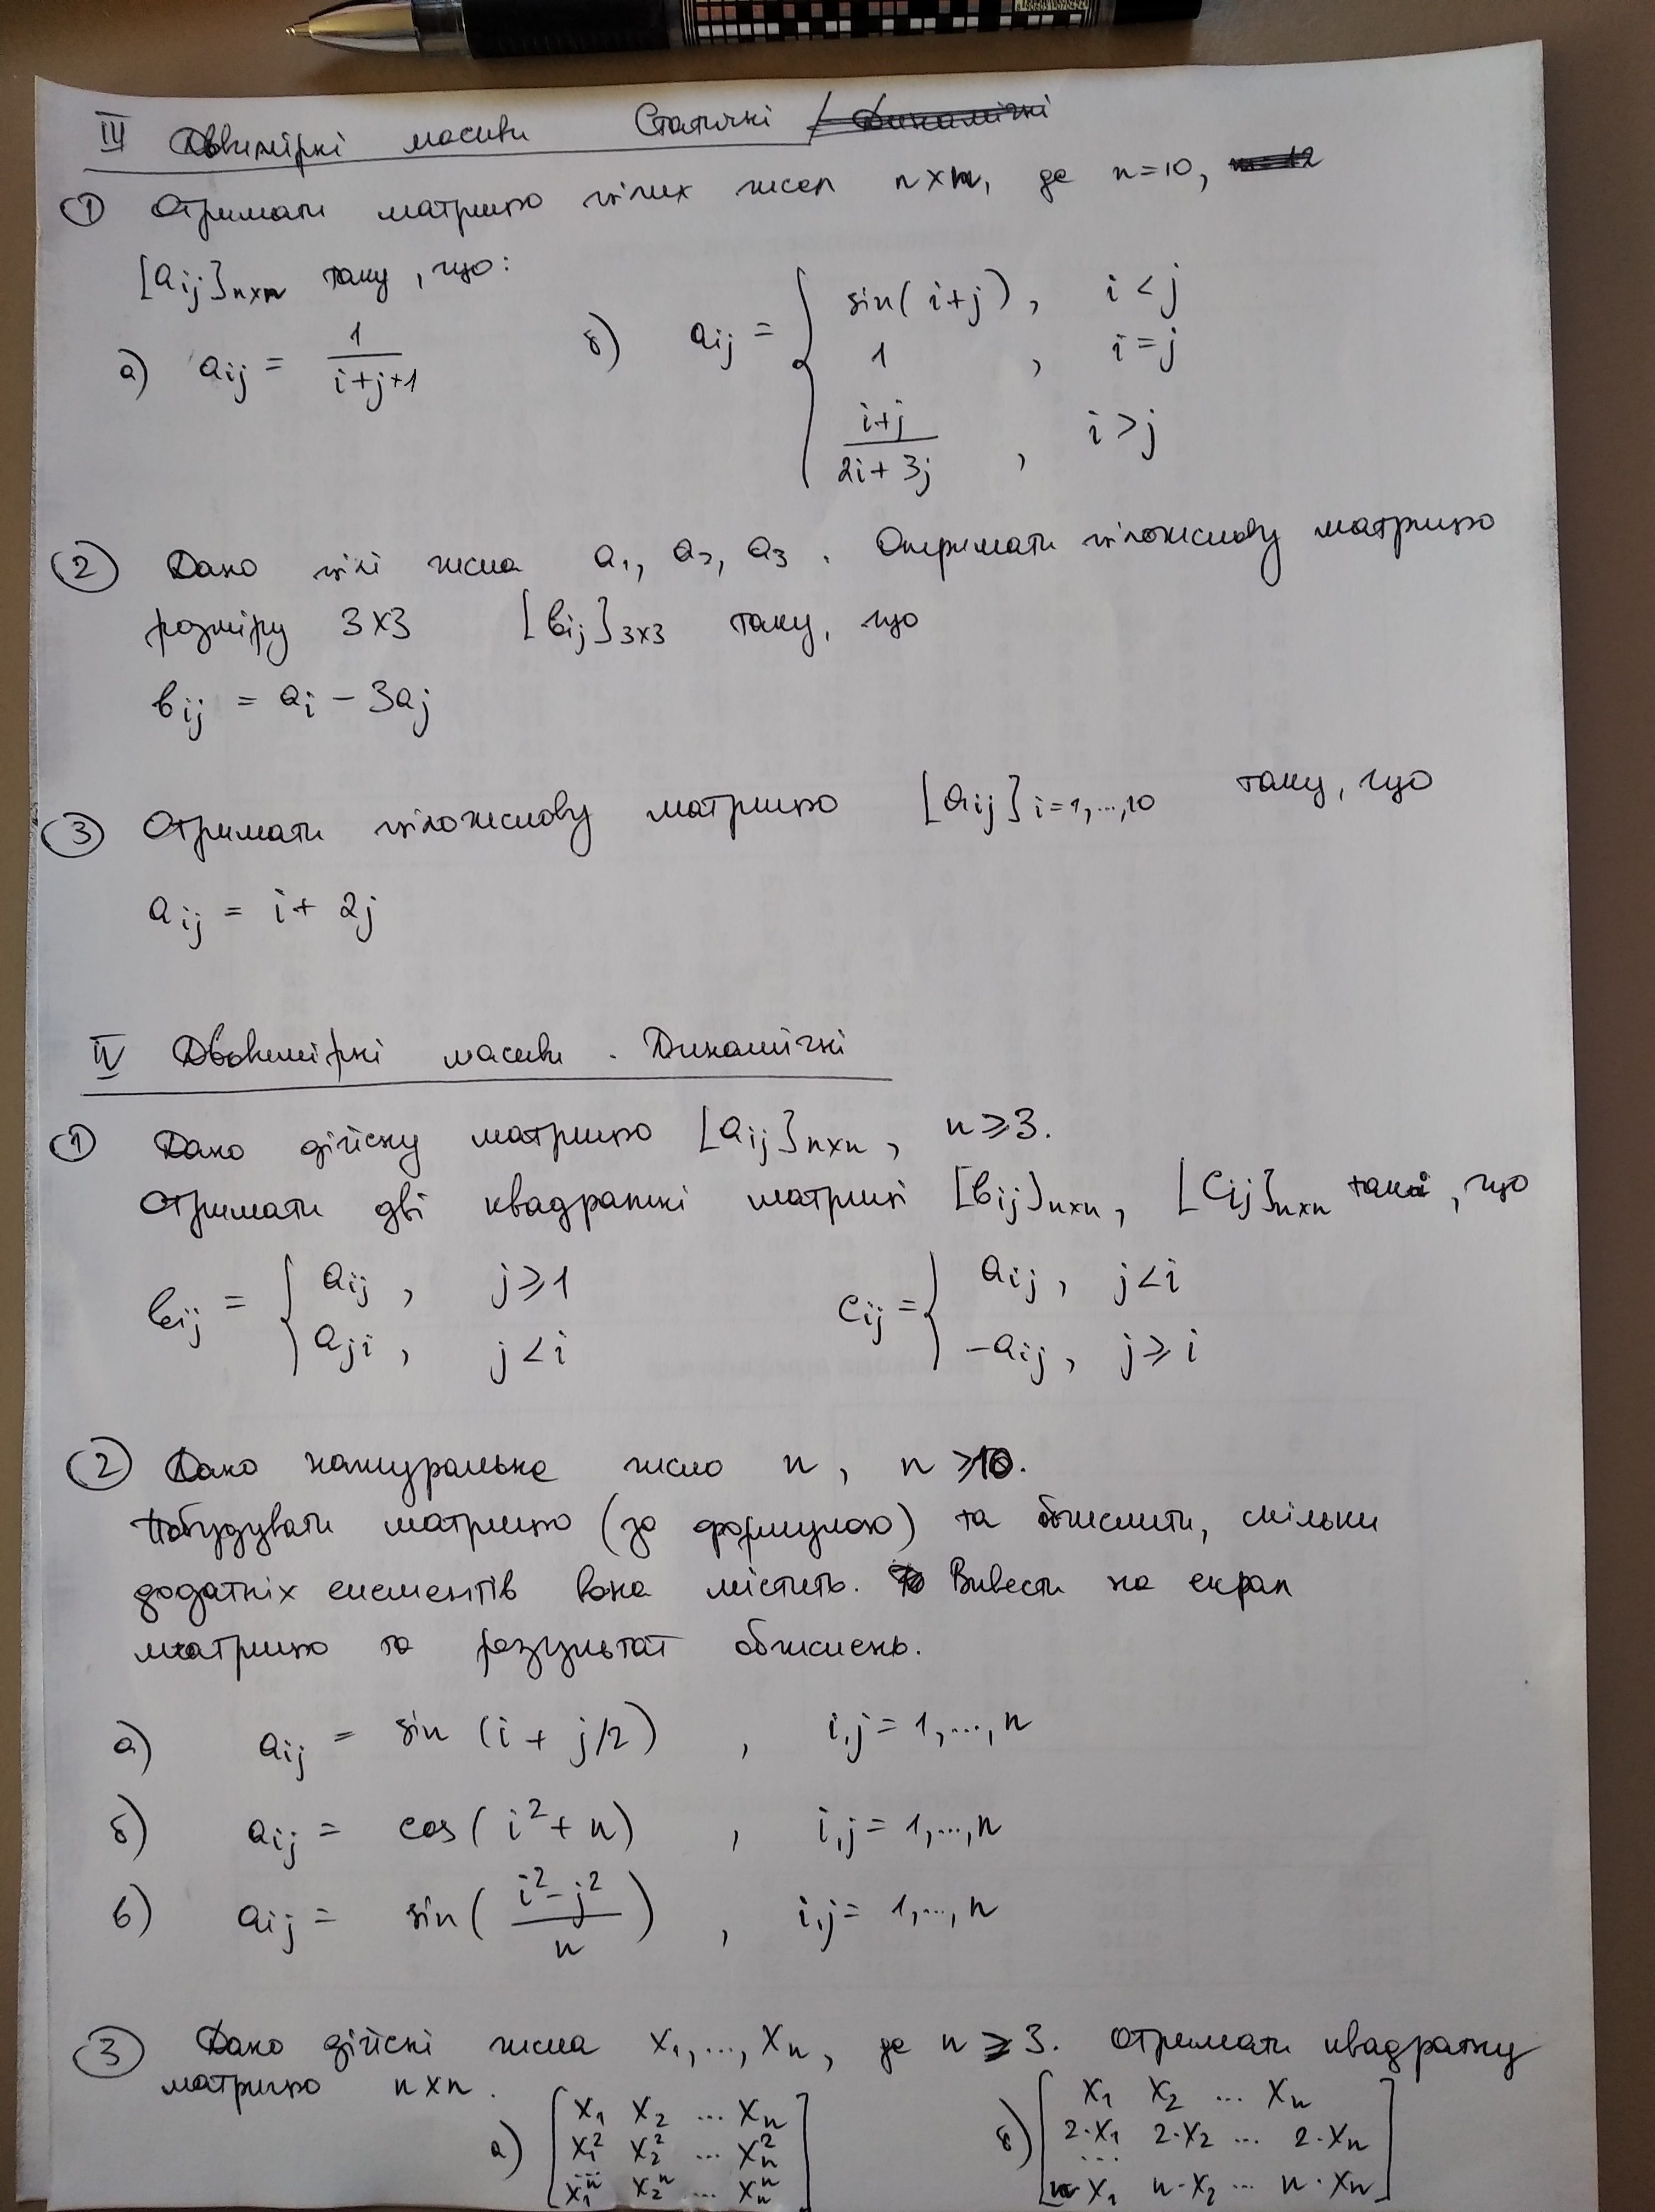 III Двовимірні масиви Статичні / Динамічні
① Отримати матрицю цілих чисел n×n, де n=10, m=12
[aij]n×n таку, що:
а) aij = 1/(i+j+1) б) aij = { sin(i+j), i<j
1, i=j
(i+j)/(2i+3j), i>j
② Дано цілі числа a₁, a₂, a₃. Отримати цілочислову матрицю
розміру 3×3 [bij]3×3 таку, що
bij = ai − 3aj
③ Отримати цілочислову матрицю [aij]i=1,...,10 таку, що
aij = i + 2j
IV Двовимірні масиви. Динамічні
① Дано дійсну матрицю [aij]n×n, n≥3.
Отримати дві квадратні матриці [bij]n×n, [cij]n×n такі, що
bij = { aij, j≥1 cij = { aij, j<i
aji, j<i −aij, j≥i
② Дано натуральне число n, n≥10.
Побудувати матрицю (за формулою) та обчислити, скільки
додатніх елементів вона містить. Вивести на екран
матрицю та результат обчислень.
а) aij = sin(i + j/2), i,j = 1,...,n
б) aij = cos(i² + n), i,j = 1,...,n
в) aij = sin((i²−j²)/n), i,j = 1,...,n
③ Дано дійсні числа x₁,...,xn, де n≥3. Отримати квадратну
матрицю n×n.
а) [x₁ x₂ ... xn б) [x₁ x₂ ... xn
x₁² x₂² ... xn² 2·x₁ 2·x₂ ... 2·xn
... ...
x₁ⁿ x₂ⁿ ... xnⁿ] n·x₁ n·x₂ ... n·xn]